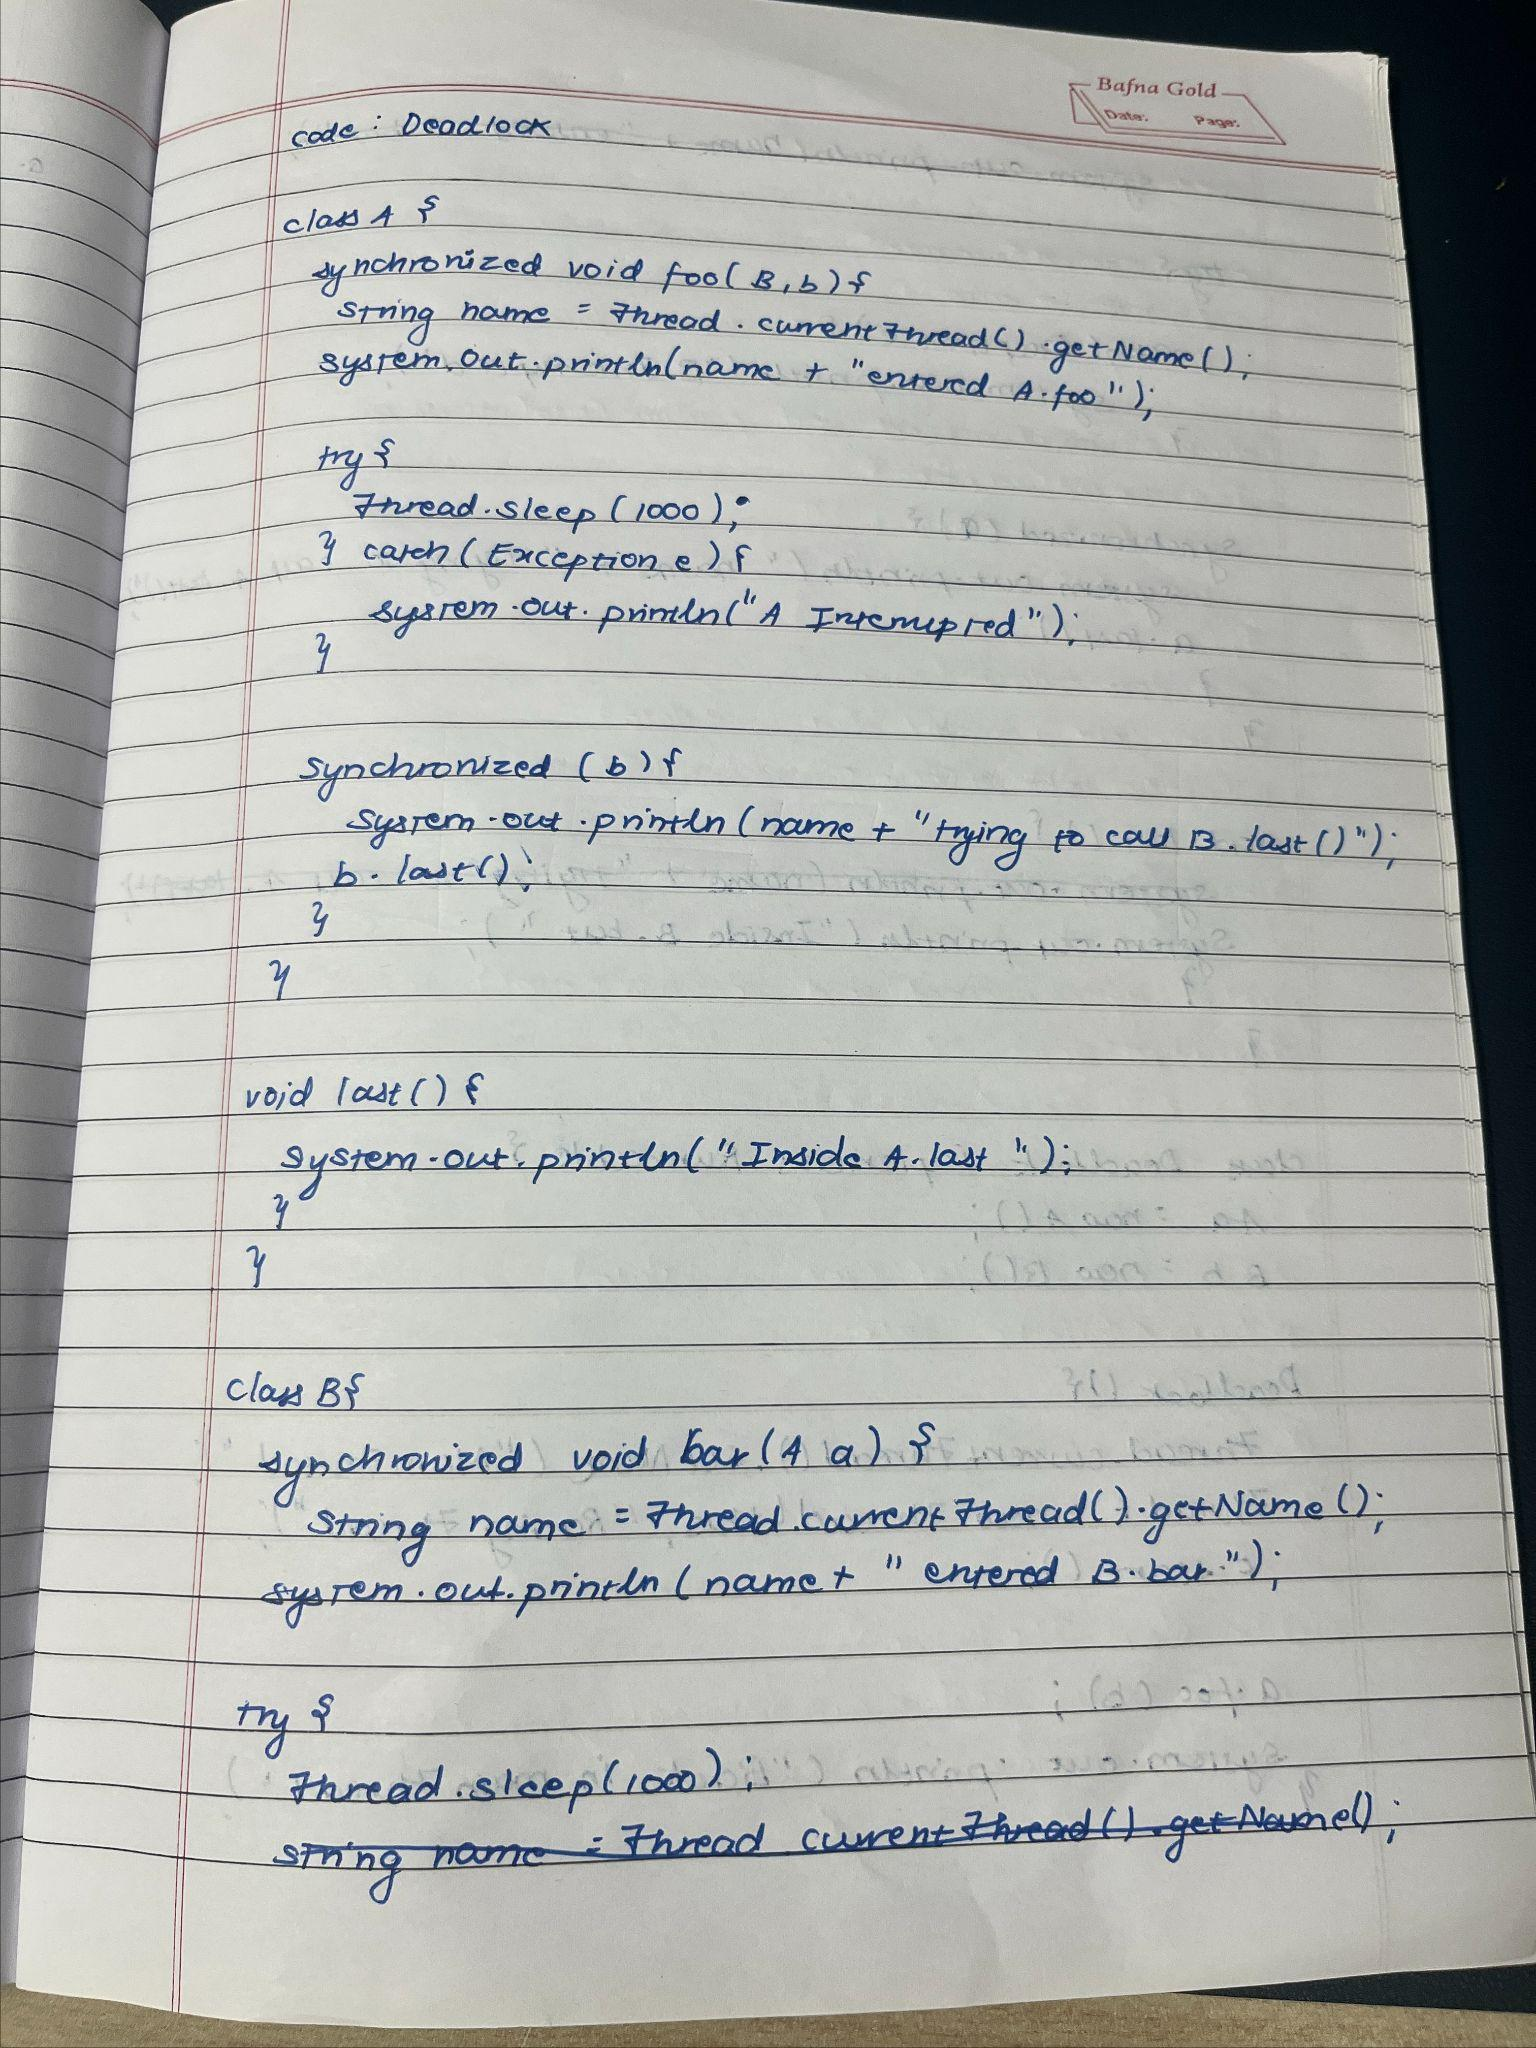 Bafna Gold
Date: Page:
code: Deadlock
class A {
synchronized void foo(B, b){
String name = Thread.currentThread().getName();
system.out.println(name + "entered A.foo");
try {
Thread.sleep(1000);
} catch(Exception e){
system.out.println("A Interrupted");
}
synchronized (b){
System.out.println(name + "trying to call B.last()");
b.last();
}
}
void last() {
system.out.println("Inside A.last ");
}
}
class B{
synchronized void bar(A a) {
String name = Thread.currentThread().getName();
system.out.println(name + " entered B.bar");
try {
Thread.sleep(1000);
string name = Thread currentThread().getName();